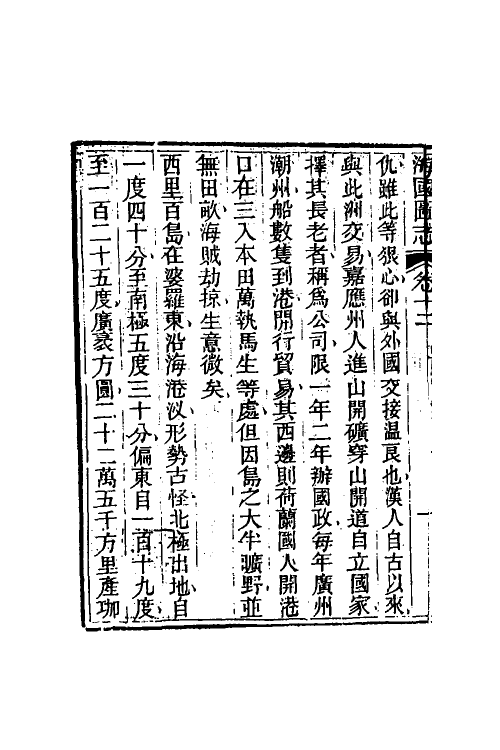 海國圖志 卷十二
仇雖此等狠心卻與外國交接温良也漢人自古以來
與此洲交易嘉應州人進山開礦穿山開道自立國家
擇其長老者稱為公司限一年二年辦國政每年廣州
潮州船數隻到港開行貿易其西邊則荷蘭國人開港
口在三入本田萬執馬生等處但因島之大半曠野並
無田畝海賊劫掠生意微矣
西里百島在婆羅東沿海港汊形勢古怪北極出地自
一度四十分至南極五度三十分偏東自一百十九度
至一百二十五度廣袤方圓二十二萬五千方里產珈